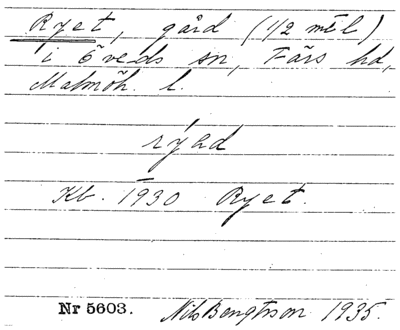 Ryet, gård (1/2 mtl)
i Öveds sn, Färs hd,
Malmöh. l.
Kb. 1930 Ryet.
Nr 5603. Nils Bengtsson 1935.